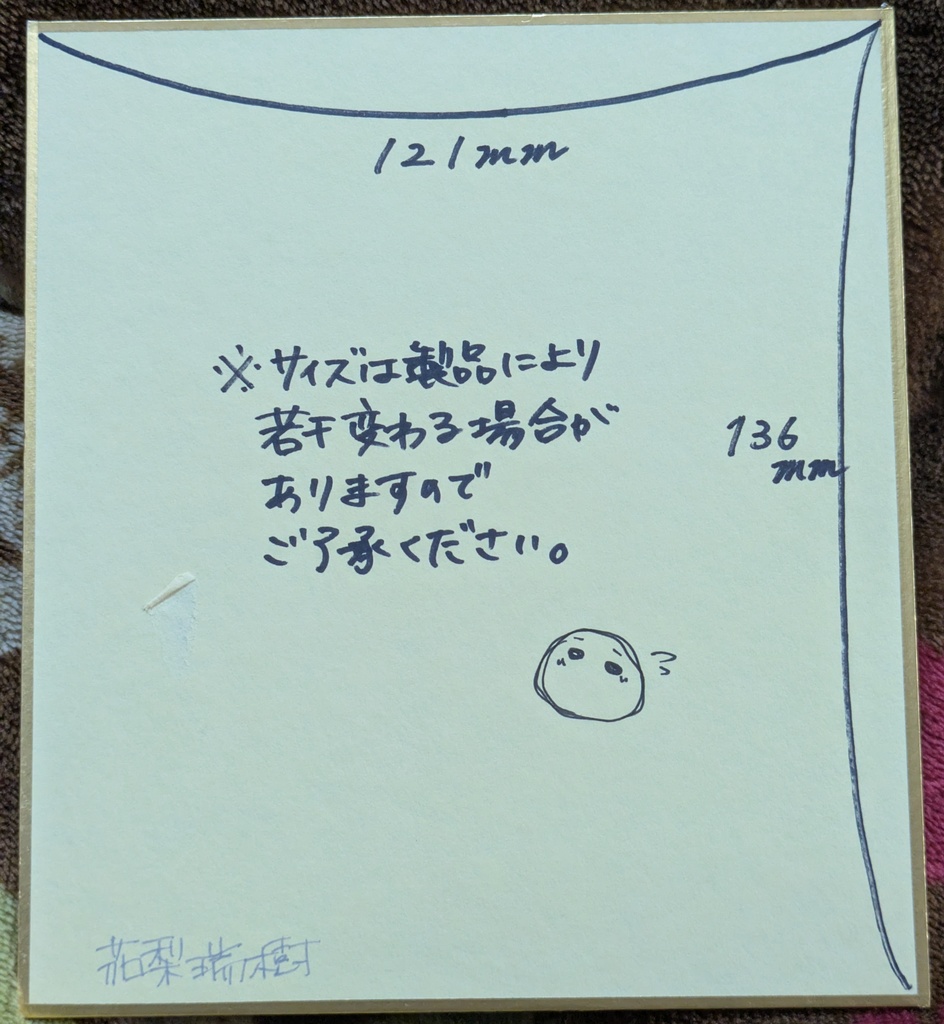 121mm
※サイズは製品により
若干変わる場合が
136
mm
ありますので
ご了承ください。
花梨瑞樹